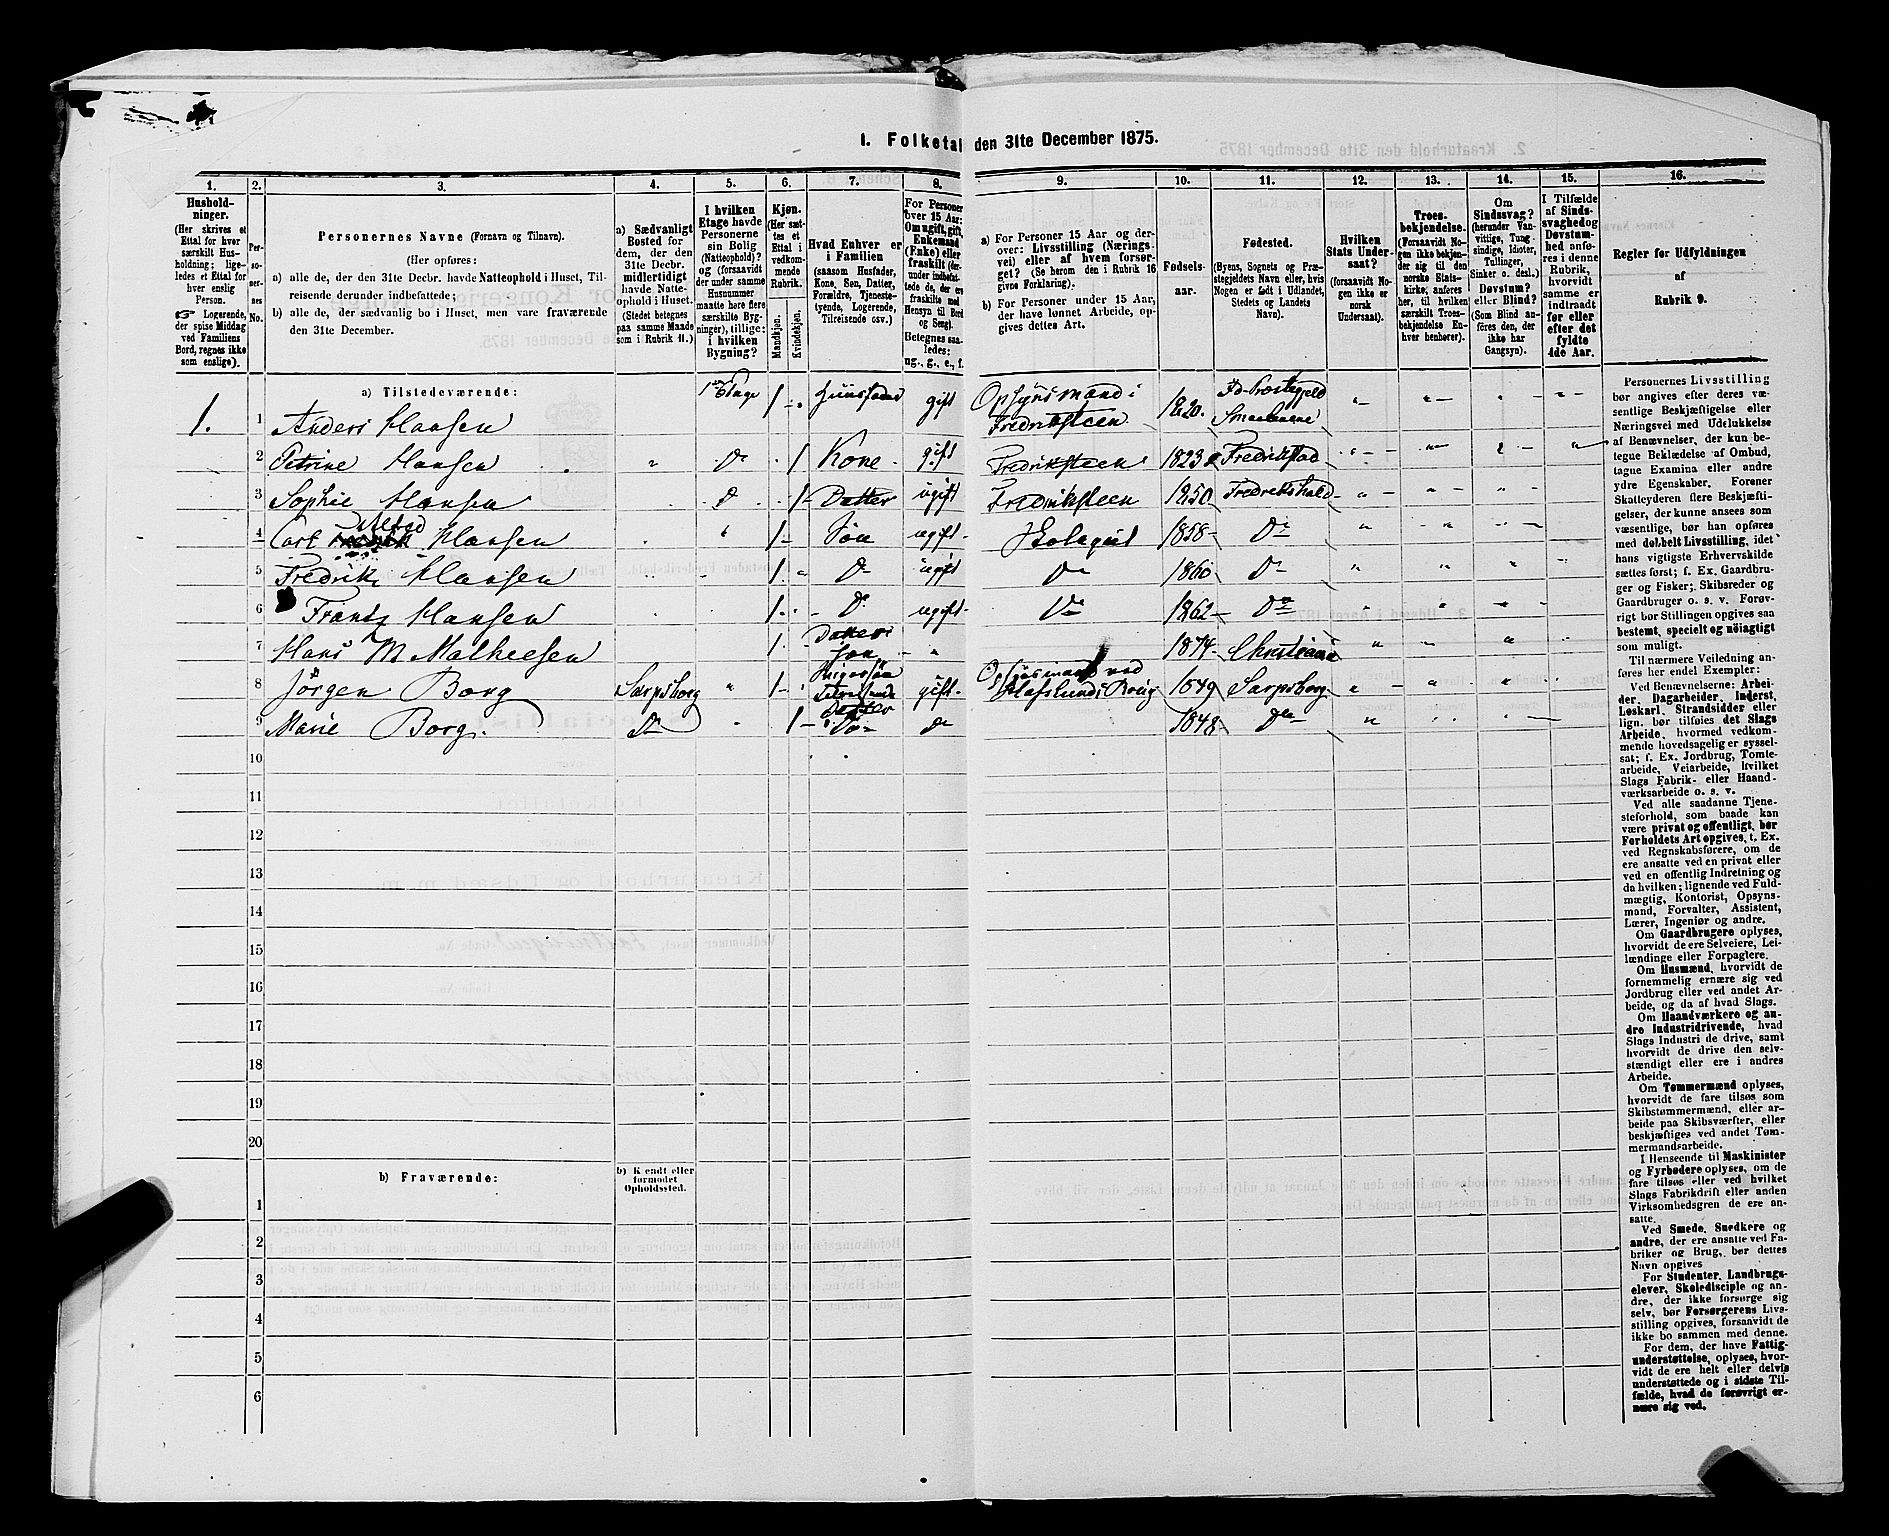 1. Folketal den 31te December 1875.
1. 2. 3. 4. 5. 6. 7. 8. 9. 10. 11. 12. 13. 14. 15. 16.
Hushold-
ninger.
(Her skrives et
Ettal for hver
særskilt Hus-
holdning; lige-
ledes et Ettal for
hver enslig
Person.
☞ Logerende,
der spise Middag
ved Familiens
Bord, regnes ikke
som enslige).
Per-
so-
ner-
nes
No.
Personernes Navne (Fornavn og Tilnavn).
(Her opføres:
a) alle de, der den 31te Decbr. havde Natteophold i Huset, Til-
reisende derunder indbefattede;
b) alle de, der sædvanlig bo i Huset, men vare fraværende
den 31te December.
a) Sædvanligt
Bosted for
dem, der den
31te Decbr.
midlertidigt
havde Natte-
ophold i Huset.
(Stedet betegnes
paa samme Maade
som i Rubrik 11.)
I hvilken
Etage havde
Personerne
sin Bolig
(Natteophold)?
og (forsaavidt
der under samme
Husnummer
maatte høre flere
særskilte Byg-
ninger), tillige:
i hvilken
Bygning?
Kjøn.
(Her sæt-
tes et
Ettal i
vedkom-
mende
Rubrik.
Mandkjøn.
Kvindekjøn.
Hvad Enhver er
i Familien
(saasom Husfader,
Kone, Søn, Datter,
Forældre, Tjeneste-
tyende, Logerende,
Tilreisende osv.)
For Personer
over 15 Aar:
Om ugift, gift,
Enkemand
(Enke) eller
fraskilt (der-
under indbefat-
tede de, der ere
fraskilte med
Hensyn til Bord
og Seng).
Betegnes saa-
ledes:
ug., g., e., f.
a) For Personer 15 Aar og der-
over: Livsstilling (Nærings-
vei) eller af hvem forsør-
get? (Se herom den i Rubrik 16
givne Forklaring).
b) For Personer under 15 Aar,
der have lønnet Arbeide, op-
gives dettes Art.
Fødsels-
aar.
Fødested.
(Byens, Sognets og Præ-
stegjeldets Navn eller, hvis
Nogen er født i Udlandet,
Stedets og Landets
Navn).
Hvilken
Stats Under-
saat?
(forsaavidt No-
gen ikke er
norsk
Undersaat).
Troes-
bekjendelse.
(Forsaavidt No-
gen ikke bekjen-
der sig til den
norske Stats-
kirke, anføres
her, til hvilken
særskilt Troes-
bekjendelse En-
hver henhører).
Om
Sindssvag?
(herunder Van-
vittige, Tung-
sindige, Idioter,
Tullinger,
Sinker o. desl.)
Døvstum?
eller Blind?
(Som Blind an-
føres den, der
ikke har
Gangsyn).
I Tilfælde
af Sinds-
svaghed og
Døvstum-
hed anfø-
res i denne
Rubrik,
hvorvidt
samme er
indtraadt
før eller
efter det
fyldte
4de Aar.
Regler for Udfyldningen
af
Rubrik 9.
a) Tilstedeværende:
1. 1 Anders Hansen 1ste Etage 1 Huusfader gift Opsynsmand i Fredriksteen 1820. Id Præstegjeld
2 Petrine Hansen " Do 1 Kone gift Fredriksteen 1823 Fredrikstad
3 Sophie Hansen D 1 Datter ugift Fredriksteen 1850 Fredrikshald
4 Carl Alfred Hansen " 1 Søn ugift Skolegut 1858 Do
5 Fredrik Hansen 1 Do ugift Do 1860 Do
6 Frantz Hansen 1 Do ugift Do 1862 Do
7 Hans M Matheesen 1 Datters søn " 1874 Christiania
8 Jörgen Borg Sarpsborg " 1 gift Opsinsmand ved Hafslunds Brug 1849 Sarpsborg
9 Marie Borg. Do 1 Datter Do Do 1848 Do
10
11
12
13
14
15
16
17
18
19
20
b) Fraværende:
b) Kjendt eller
formodet
Opholdssted.
1
2
3
4
5
6
Personernes Livsstilling
bør angives efter deres væ-
sentlige Beskjæftigelse eller
Næringsvei med Udelukkelse
af Benævnelser, der kun be-
tegne Beklædelse af Ombud,
tagne Examina eller andre
ydre Egenskaber. Forener
Skatteyderen flere Beskjæfti-
gelser, der kunne ansees som
væsentlige, bør han opføres
med dobbelt Livsstilling, idet
hans vigtigste Erhvervskilde
sættes først; f. Ex. Gaardbru-
ger og Fisker; Skibsreder og
Gaardbruger o. s. v. Forøv-
rigt bør Stillingen opgives saa
bestemt, specielt og nöiagtigt
som muligt.
Til nærmere Veiledning an-
føres her endel Exempler:
Ved Benævnelserne: Arbei-
der, Dagarbeider, Inderst,
Løskarl, Strandsidder eller
lign. bør tilføies det Slags
Arbeide, hvormed vedkom-
mende hovedsagelig er syssel-
sat; f. Ex. Jordbrug, Tomte-
arbeide, Veiarbeide, hvilket
Slags Fabrik- eller Haand-
værksarbeide o. s. v.
Ved alle saadanne Tjene-
steforhold, som baade kan
være privat og offentligt, bør
Forholdets Art opgives, t. Ex.
ved Regnskabsførere, om de
ere ansatte ved en privat eller
ved en offentlig Indretning og
da hvilken; lignende ved Fuld-
mægtig, Kontorist, Opsyns-
mand, Forvalter, Assistent,
Lærer, Ingeniør og andre.
Om Gaardbrugere oplyses,
hvorvidt de ere Selveiere, Lei-
lændinge eller Forpagtere.
Om Husmænd, hvorvidt de
fornemmelig ernære sig ved
Jordbrug eller ved andet Ar-
beide, og da af hvad Slags.
Om Haandværkere og an-
dre Industridrivende, hvad
Slags Industri de drive, samt
hvorvidt de drive den selv-
stændigt eller ere i andres
Arbeide.
Om Tømmermænd oplyses,
hvorvidt de fare tilsøs som
Skibstømmermænd, eller ar-
beide paa Skibsværfter, eller
beskjæftiges ved andet Tøm-
mermandsarbeide.
I Henseende til Maskinister
og Fyrbødere oplyses, om de
fare tilsøs eller ved hvilket
Slags Fabrikdrift eller anden
Virksomhedsgren de ere an-
satte.
Ved Smede, Snedkere og
andre, der ere ansatte ved Fa-
briker og Brug, bør dettes
Navn opgives
For Studenter, Landbrugs-
elever, Skoledisciple og an-
dre, der ikke forsørge sig
selv, bør Forsørgerens Livs-
stilling opgives, forsaavidt de
ikke bo sammen med denne.
For dem, der have Fattig-
understøttelse, oplyses, hvor-
vidt de ere helt eller delvis
understøttede og i sidste Til-
fælde, hvad de forøvrigt er-
nære sig ved.